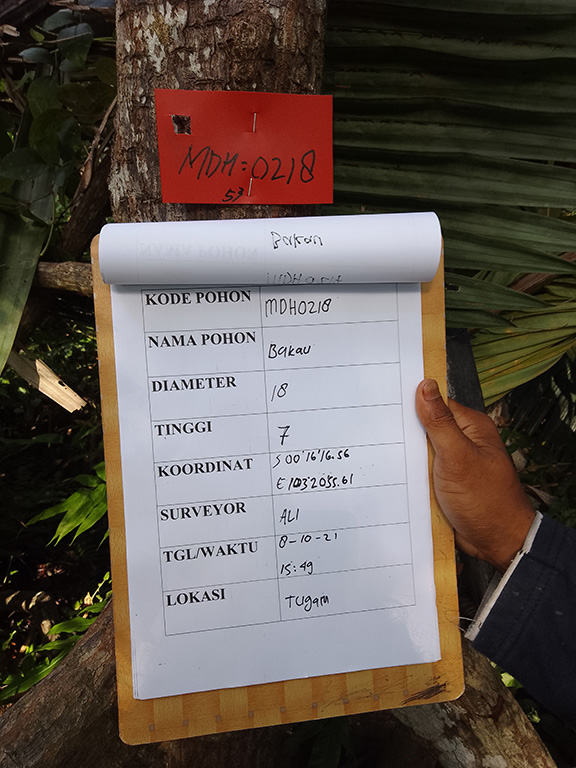 MDH:0218
53
Bakau
KODE POHON MDH0218
NAMA POHON Bakau
DIAMETER 18
TINGGI 7
KOORDINAT S 00°16'16.56
E 103°20'55.61
SURVEYOR ALI
TGL/WAKTU 8-10-21
15:49
LOKASI Tugam